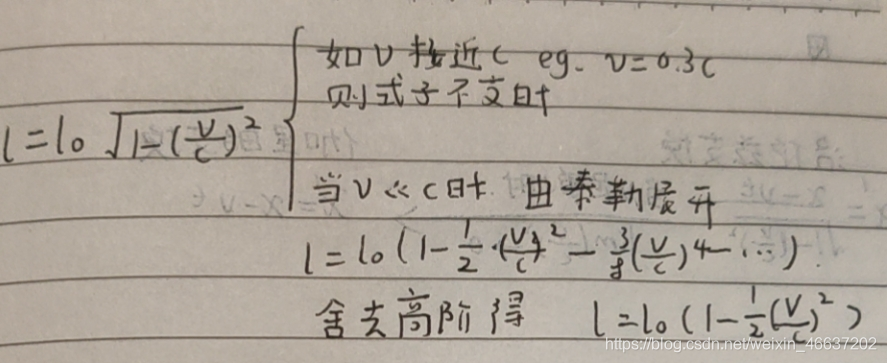 如 v 接近 c eg. v=0.3c
则式子不变
l=l₀√(1-(v/c)²)
当 v << c 时. 由泰勒展开
l=l₀(1-1/2·(v/c)²-3/8(v/c)⁴-…)
舍去高阶得 l=l₀(1-1/2(v/c)²)
https://blog.csdn.net/weixin_46637202